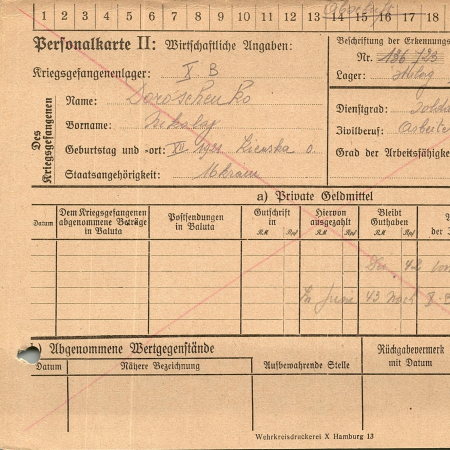 1 2 3 4 5 6 7 8 9 10 11 12 13 14 15 16 17 18
Personalkarte II: Wirtschaftliche Angaben:
Kriegsgefangenenlager: X B
Des Kriegsgefangenen
Name: Doroschenko
Vorname: Nikolaj
Geburtstag und -ort: VII 1921
Staatsangehörigkeit: Ukrain
Beschriftung der Erkennungs
Nr. 136 723
Lager: Stalag
Dienstgrad: Solda
Zivilberuf: Arbeite
Grad der Arbeitsfähigke
a) Private Geldmittel
Datum
Dem Kriegsgefangenen abgenommene Beträge in Valuta
Postsendungen in Valuta
Gutschrift in
RM Rpf
Hiervon ausgezahlt
RM Rpf
Bleibt Guthaben
RM Rpf
42
Juni 43 nach X B
) Abgenommene Wertgegenstände
Datum
Nähere Bezeichnung
Aufbewahrende Stelle
Rückgabevermerk mit Datum
Wehrkreisdruckerei X Hamburg 13